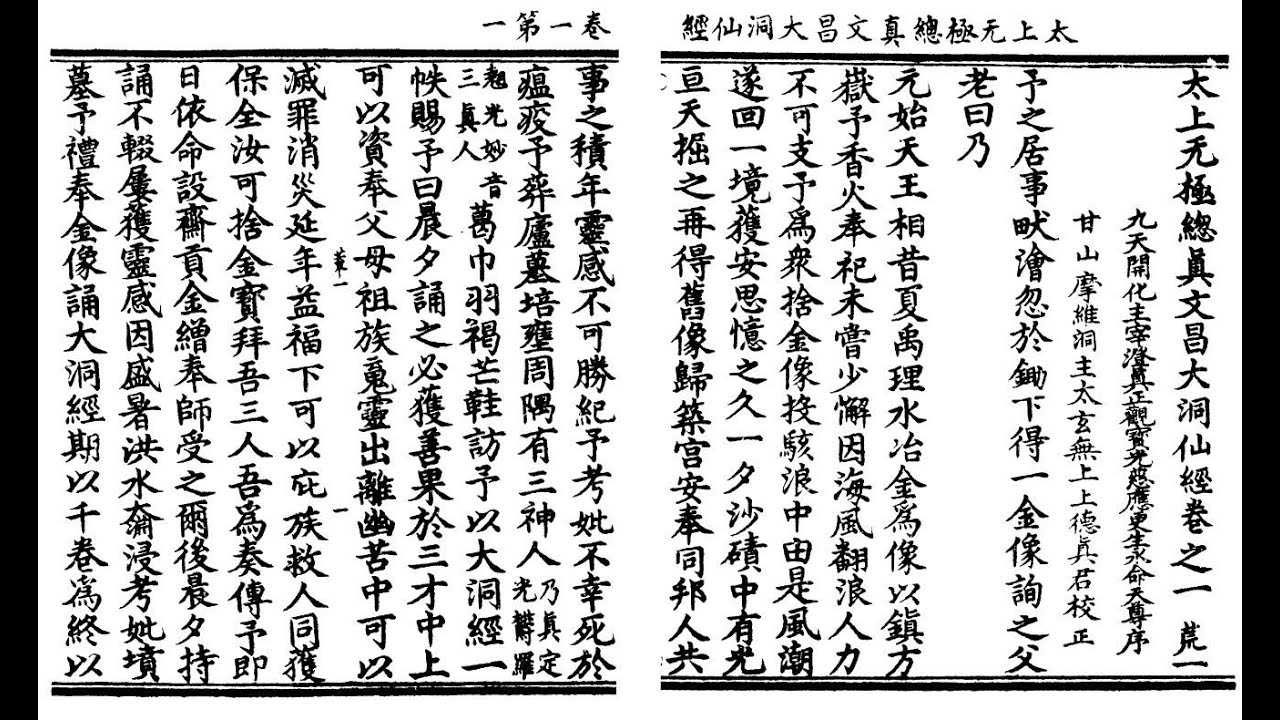 太上无極總真文昌大洞仙經
太上无極總眞文昌大洞仙經卷之一 荒一
九天開化主宰澄眞正觀寶光慈應更生永命天尊序
甘山摩維洞主太玄無上上德眞君校正
予之居事畎澮忽於鋤下得一金像詢之父
老曰乃
元始天王相昔夏禹理水冶金爲像以鎮方
嶽予香火奉祀未嘗少懈因海風翻浪人力
不可支予爲衆捨金像投駭浪中由是風潮
遂回一境獲安思憶之久一夕沙磧中有光
亘天掘之再得舊像歸築宮安奉同邦人共
卷一第一
事之積年靈感不可勝紀予考妣不幸死於
瘟疫予葬廬墓培壅周隅有三神人乃眞定光欝羅
翹光妙音三眞人葛巾羽褐芒鞋訪予以大洞經一
帙賜予曰晨夕誦之必獲善果於三才中上
可以資奉父母祖族䰟靈出離幽苦中可以
滅罪消災延年益福下可以庇族救人同獲
保全汝可捨金寶拜吾三人吾爲奏傳予即
日依命設齋貢金繒奉師受之爾後晨夕持
誦不輟屢獲靈感因盛暑洪水奫浸考妣墳
墓予禮奉金像誦大洞經期以千卷爲終以